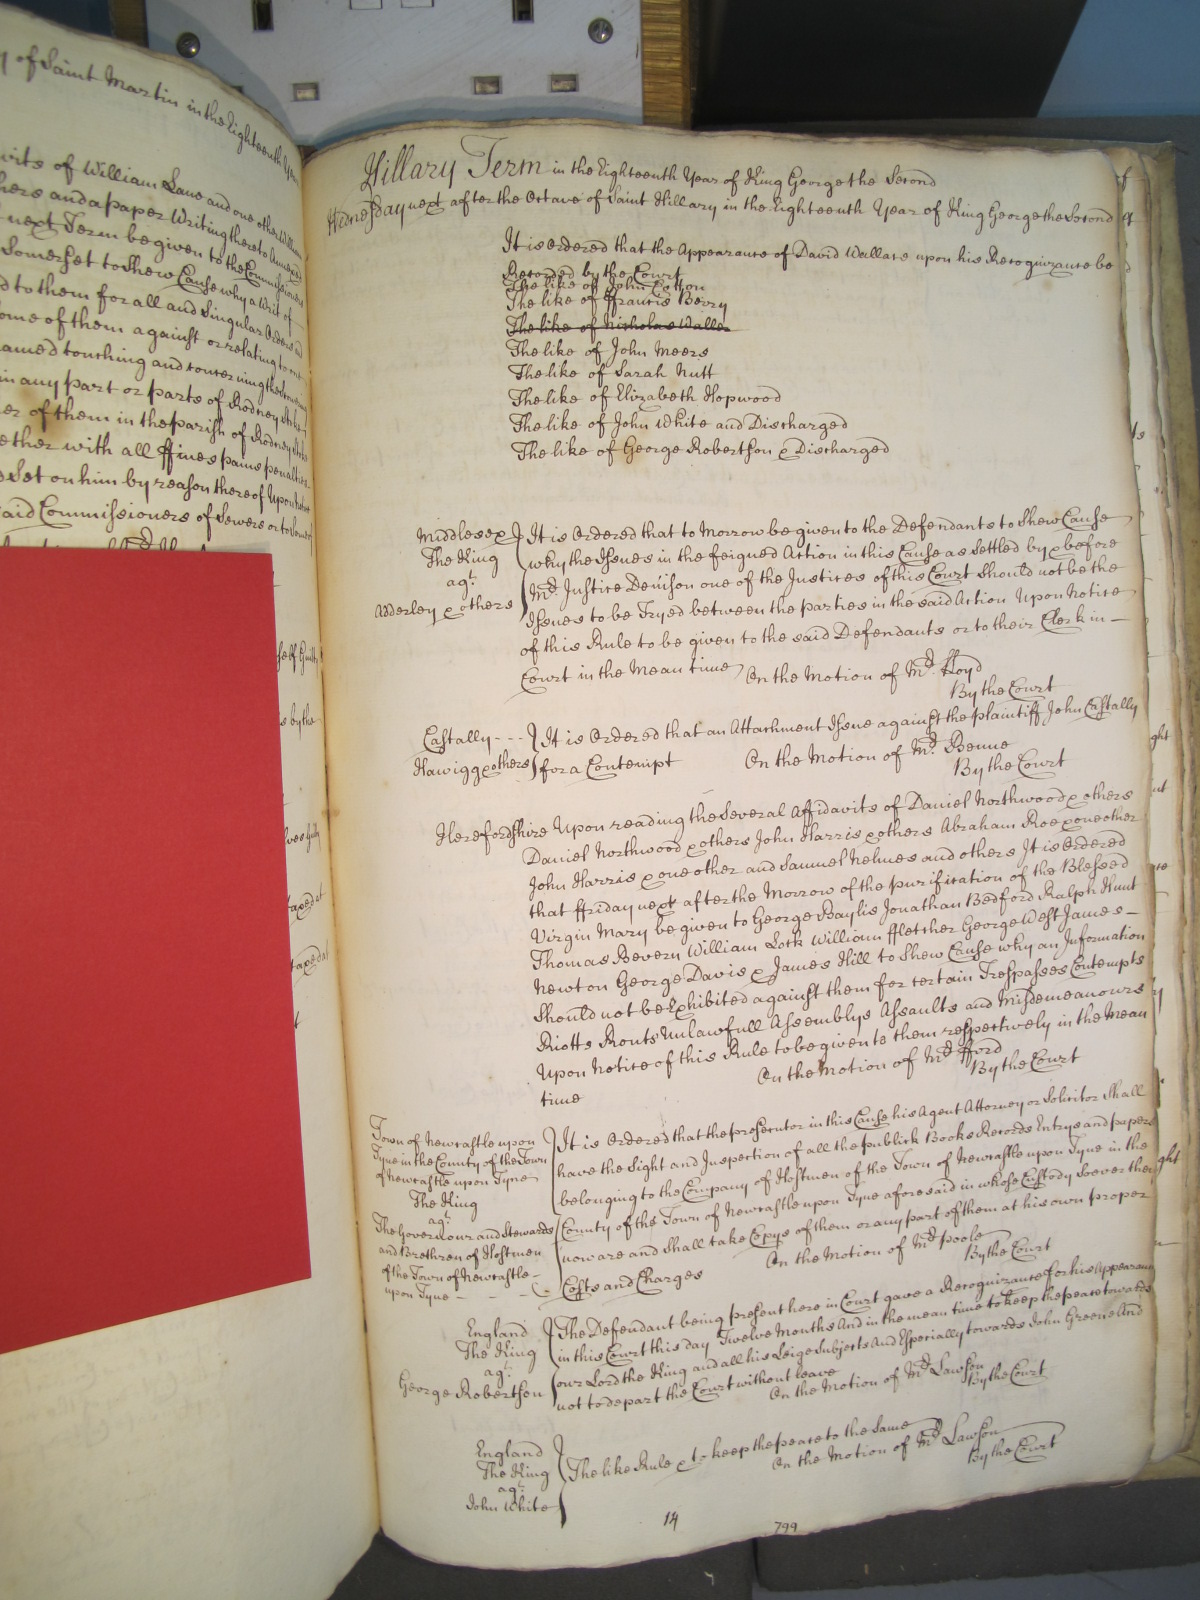 y of Saint Martin in the Eighteenth Year
William Lane and one other
hers and a paper Writing thereto Annexed
next Term be given to the Commissioners
Somerset to Shew Cause why a Writ of
d to them for all and Singular Orders
ome of them against or relating to
amed touching and concerning the
in any part or parts of Rodney Stoke
er of them in the parish of Rodney
ether with all ffines pains penalties
Set on him by reason thereof Upon
aid Commissioners of Sewers or to
Hillary Term in the Eighteenth Year of King George the Second
Wednesday next after the Octave of Saint Hillary in the Eighteenth Year of King George the Second
It is Ordered that the Appearance of David Wallace upon his Recognizance be
Recorded by the Court
The like of John Cotton
The like of ffrancis Berry
The like of Nicholas Waller
The like of John Meers
The like of Sarah Nutt
The like of Elizabeth Hopwood
The like of John White and Discharged
The like of George Robertson & Discharged
Middlesex It is Ordered that to Morrow be given to the Defendants to Shew Cause
The King why the Issues in the feigned Action in this Cause as Settled by & before
agt. Mr. Justice Denison one of the Justices of this Court Should not be the
Adderley & others Issues to be Tryed between the parties in the said Action Upon Notice
of this Rule to be given to the said Defendants or to their Clerk in
Court in the Mean time On the Motion of Mr. Lloyd
By the Court
Castally It is Ordered that an Attachment Issue against the plaintiff John Castally
Hawigg & others for a Contempt On the Motion of Mr. Benne
By the Court
Herefordshire Upon reading the Several Affidavits of Daniel Northwood & others
Daniel Northwood & others John Harris & others Abraham Roe & one other
John Harris & one other and Samuel Nelmes and others It is Ordered
that ffriday next after the Morrow of the purification of the Blessed
Virgin Mary be given to George Baylis Jonathan Bedford Ralph Hunt
Thomas Bevern William Lock William ffletcher George West James
Newton George Davis & James Hill to Shew Cause why an Information
Should not be Exhibited against them for certain Trespasses Contempts
Riotts Routs Unlawfull Assemblys Assaults and Misdemeanours
Upon Notice of this Rule to be given to them respectively in the Mean
time On the Motion of Mr. fford
By the Court
Town of Newcastle upon It is Ordered that the prosecutor in this Cause his Agent Attorney or Solicitor Shall
Tyne in the County of the Town have the Sight and Inspection of all the publick Books Records Entrys and papers
of Newcastle upon Tyne belonging to the Company of Hostmen of the Town of Newcastle upon Tyne in the
The King
agt.
The Governour and Stewards County of the Town of Newcastle upon Tyne aforesaid in whose Custody Soever they
and Brethren of Hostmen now are and Shall take Copys of them or any part of them at his own proper
of the Town of Newcastle Costs and Charges On the Motion of Mr. Poole
upon Tyne By the Court
England The Defendant being present here in Court gave a Recognizance for his Appearance
The King in this Court this day Twelve Months And in the mean time to keep the peace towards
agt. our Lord the King and all his Leige Subjects And Especially towards John Greene And
George Robertson not to depart the Court without leave On the Motion of Mr. Lawson
By the Court
England
The King The like Rule & to keep the peace to the Same On the Motion of Mr. Lawson
agt. By the Court
John White
14 799